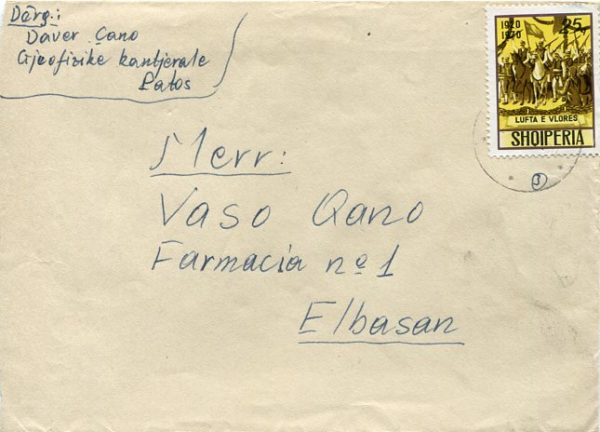 Dërg:
Daver Çano
Gjeofizike kantjerale
Patos
1920 25
1970
LUFTA E VLORES
SHQIPERIA
3
Merr:
Vaso Qano
Farmacia nº 1
Elbasan